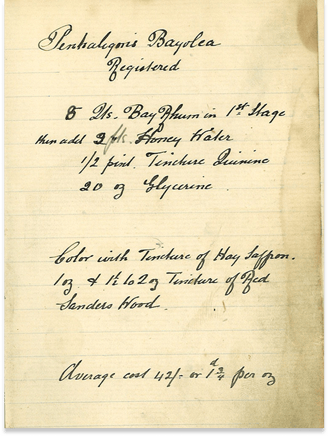 Penhaligon's Bayolea
Registered
8 Qts. Bay Rhum in 1st Stage
then add 3 pts. Honey Water
1/2 pint Tincture Quinine
20 oz Glycerine
Color with Tincture of Hay Saffron.
1 oz & 1½ to 2 oz Tincture of Red
Sanders Wood.
Average cost 42/- or 1 3/4 d per oz